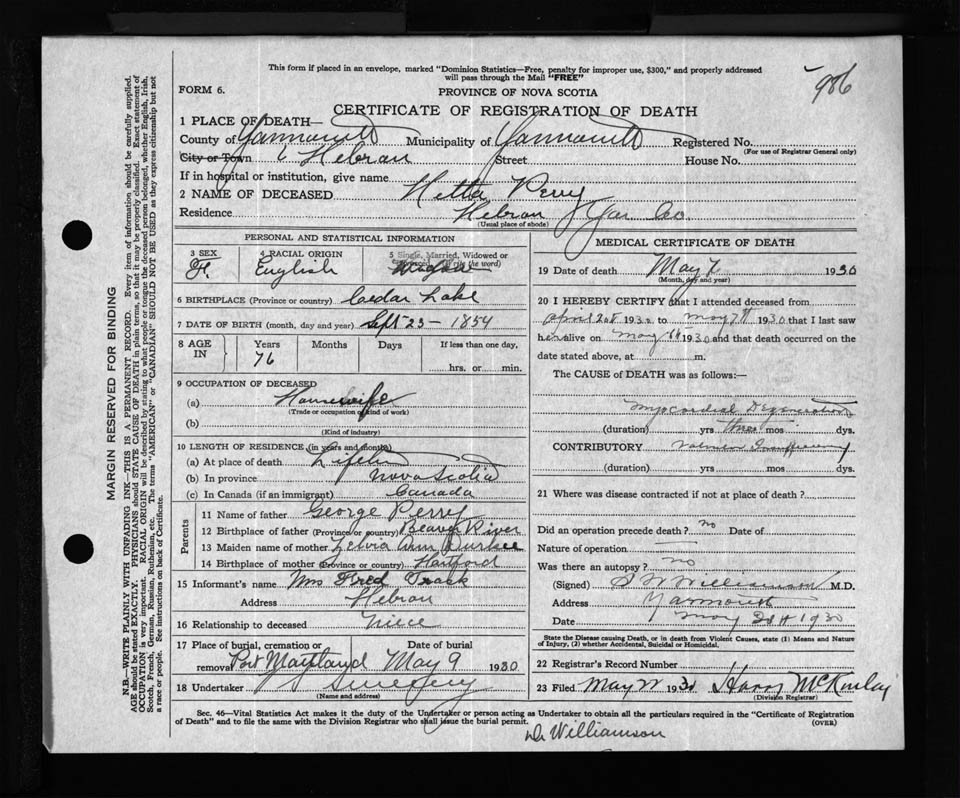 This form if placed in an envelope, marked "Dominion Statistics—Free, penalty for improper use, $300," and properly addressed
will pass through the Mail "FREE"
986
FORM 6.
PROVINCE OF NOVA SCOTIA
CERTIFICATE OF REGISTRATION OF DEATH
1 PLACE OF DEATH—
County of Yarmouth Municipality of Yarmouth Registered No.
(For use of Registrar General only)
City or Town Hebron Street House No.
If in hospital or institution, give name
2 NAME OF DECEASED Hetta Perry
Residence Hebron Yar Co.
(Usual place of abode)
PERSONAL AND STATISTICAL INFORMATION
3 SEX 4 RACIAL ORIGIN 5 Single, Married, Widowed or
F. English (write the word)
6 BIRTHPLACE (Province or country) Cedar Lake
7 DATE OF BIRTH (month, day and year) Sept 23 – 1854
8 AGE IN Years Months Days If less than one day,
76 hrs. or min.
9 OCCUPATION OF DECEASED
(a) Housewife
(Trade or occupation or kind of work)
(b)
(Kind of industry)
10 LENGTH OF RESIDENCE (in years and months)
(a) At place of death
(b) In province Nova Scotia
(c) In Canada (if an immigrant) Canada
Parents
11 Name of father George Perry
12 Birthplace of father (Province or country) Beaver River
13 Maiden name of mother Ann Durkee
14 Birthplace of mother (Province or country) Hartford
15 Informant's name Mrs Fred Trask
Address Hebron
16 Relationship to deceased Niece
17 Place of burial, cremation or Date of burial
removal Port Maitland May 9 1930
18 Undertaker Sweeney
(Name and address)
MEDICAL CERTIFICATE OF DEATH
19 Date of death May 7 1930
(Month, day and year)
20 I HEREBY CERTIFY that I attended deceased from
April 193 to May 7th 1930 that I last saw
her alive on May 1930 and that death occurred on the
date stated above, at m.
The CAUSE of DEATH was as follows:—
Myocardial Degeneration
(duration) yrs three mos dys.
CONTRIBUTORY
(duration) yrs mos dys.
21 Where was disease contracted if not at place of death?
Did an operation precede death? no Date of
Nature of operation
Was there an autopsy? no
(Signed) Williamson M.D.
Address Yarmouth
Date May 1930
State the Disease causing Death, or in death from Violent Causes, state (1) Means and Nature
of Injury, (2) whether Accidental, Suicidal or Homicidal.
22 Registrar's Record Number
23 Filed May 193 Harry McKinlay
(Division Registrar)
Sec. 46—Vital Statistics Act makes it the duty of the Undertaker or person acting as Undertaker to obtain all the particulars required in the "Certificate of Registration
of Death" and to file the same with the Division Registrar who shall issue the burial permit. (OVER)
Dr Williamson
MARGIN RESERVED FOR BINDING
N.B.—WRITE PLAINLY WITH UNFADING INK—THIS IS A PERMANENT RECORD. Every item of information should be carefully supplied.
AGE should be stated EXACTLY. PHYSICIANS should STATE CAUSE OF DEATH in plain terms, so that it may be properly classified. Exact statement of
OCCUPATION is very important. RACIAL ORIGIN will be described by stating to what people or tongue the deceased person belonged, whether English, Irish,
Scotch, French, German, Russian, Ruthenian, etc. The terms "AMERICAN" or "CANADIAN" SHOULD NOT BE USED as they express citizenship but not
a race or people. See instructions on back of Certificate.